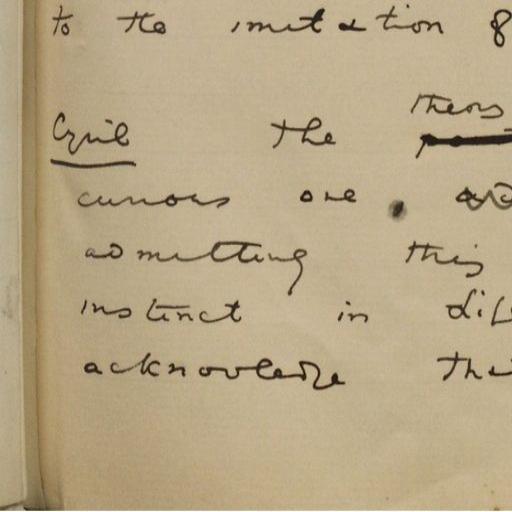 to the imitation of
Cyril The theory
curious one
admitting this
instinct in
acknowledge